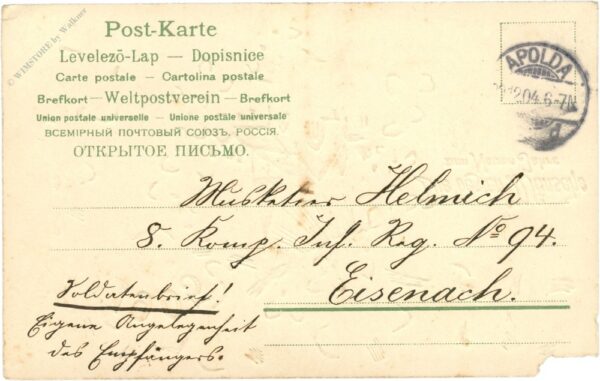 © WIMSTORE by Walkner
Post-Karte
Levelező-Lap — Dopisnice
Carte postale — Cartolina postale
Brefkort — Weltpostverein — Brefkort
Union postale universelle — Unione postale universale
ВСЕМІРНЫЙ ПОЧТОВЫЙ СОЮЗЪ, РОССІЯ.
ОТКРЫТОЕ ПИСЬМО.
APOLDA
12 04. 6-7N
Musketier Helmich
8. Komp. Inf. Reg. No 94.
Eisenach.
Soldatenbrief!
Eigene Angelegenheit
des Empfängers.